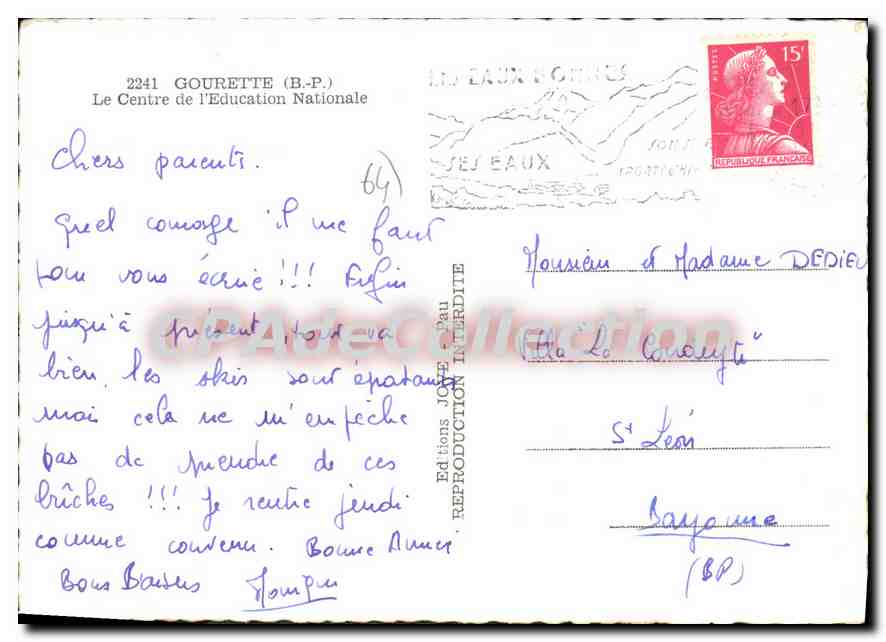 2241 GOURETTE (B.-P.)
Le Centre de l'Education Nationale
Chers parents.
64)
Quel courage il me faut
pour vous écrire !!! Enfin
jusqu'à présent, tout va
bien, les skis sont épatants
mais cela ne m'empêche
pas de prendre de ces
bûches !!! Je rentre jeudi
comme convenu. Bonne Année
Bons Baisers Monique
Editions JOVE - Pau
REPRODUCTION INTERDITE
LES EAUX BONNES
SES EAUX
SON
SPORTS
POSTES
15F
REPUBLIQUE FRANÇAISE
Monsieur et Madame DEDIEU
Villa "La
St Léon
Bayonne
(BP)
CPAdeCollection.com